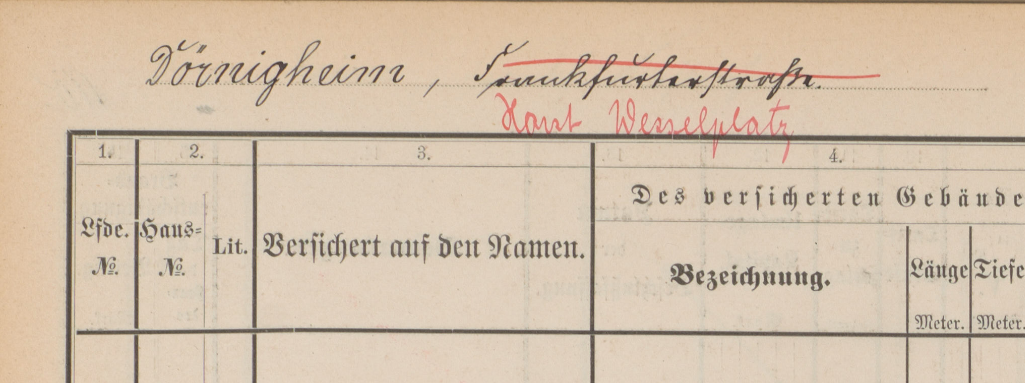 Dörnigheim, Frankfurterstraße.
Horst Wesselplatz
1. 2. 3. 4.
Des versicherten Gebäude
Lfde. Haus= Lit. Versichert auf den Namen. Bezeichnung. Länge Tiefe
No. No. Meter. Meter.